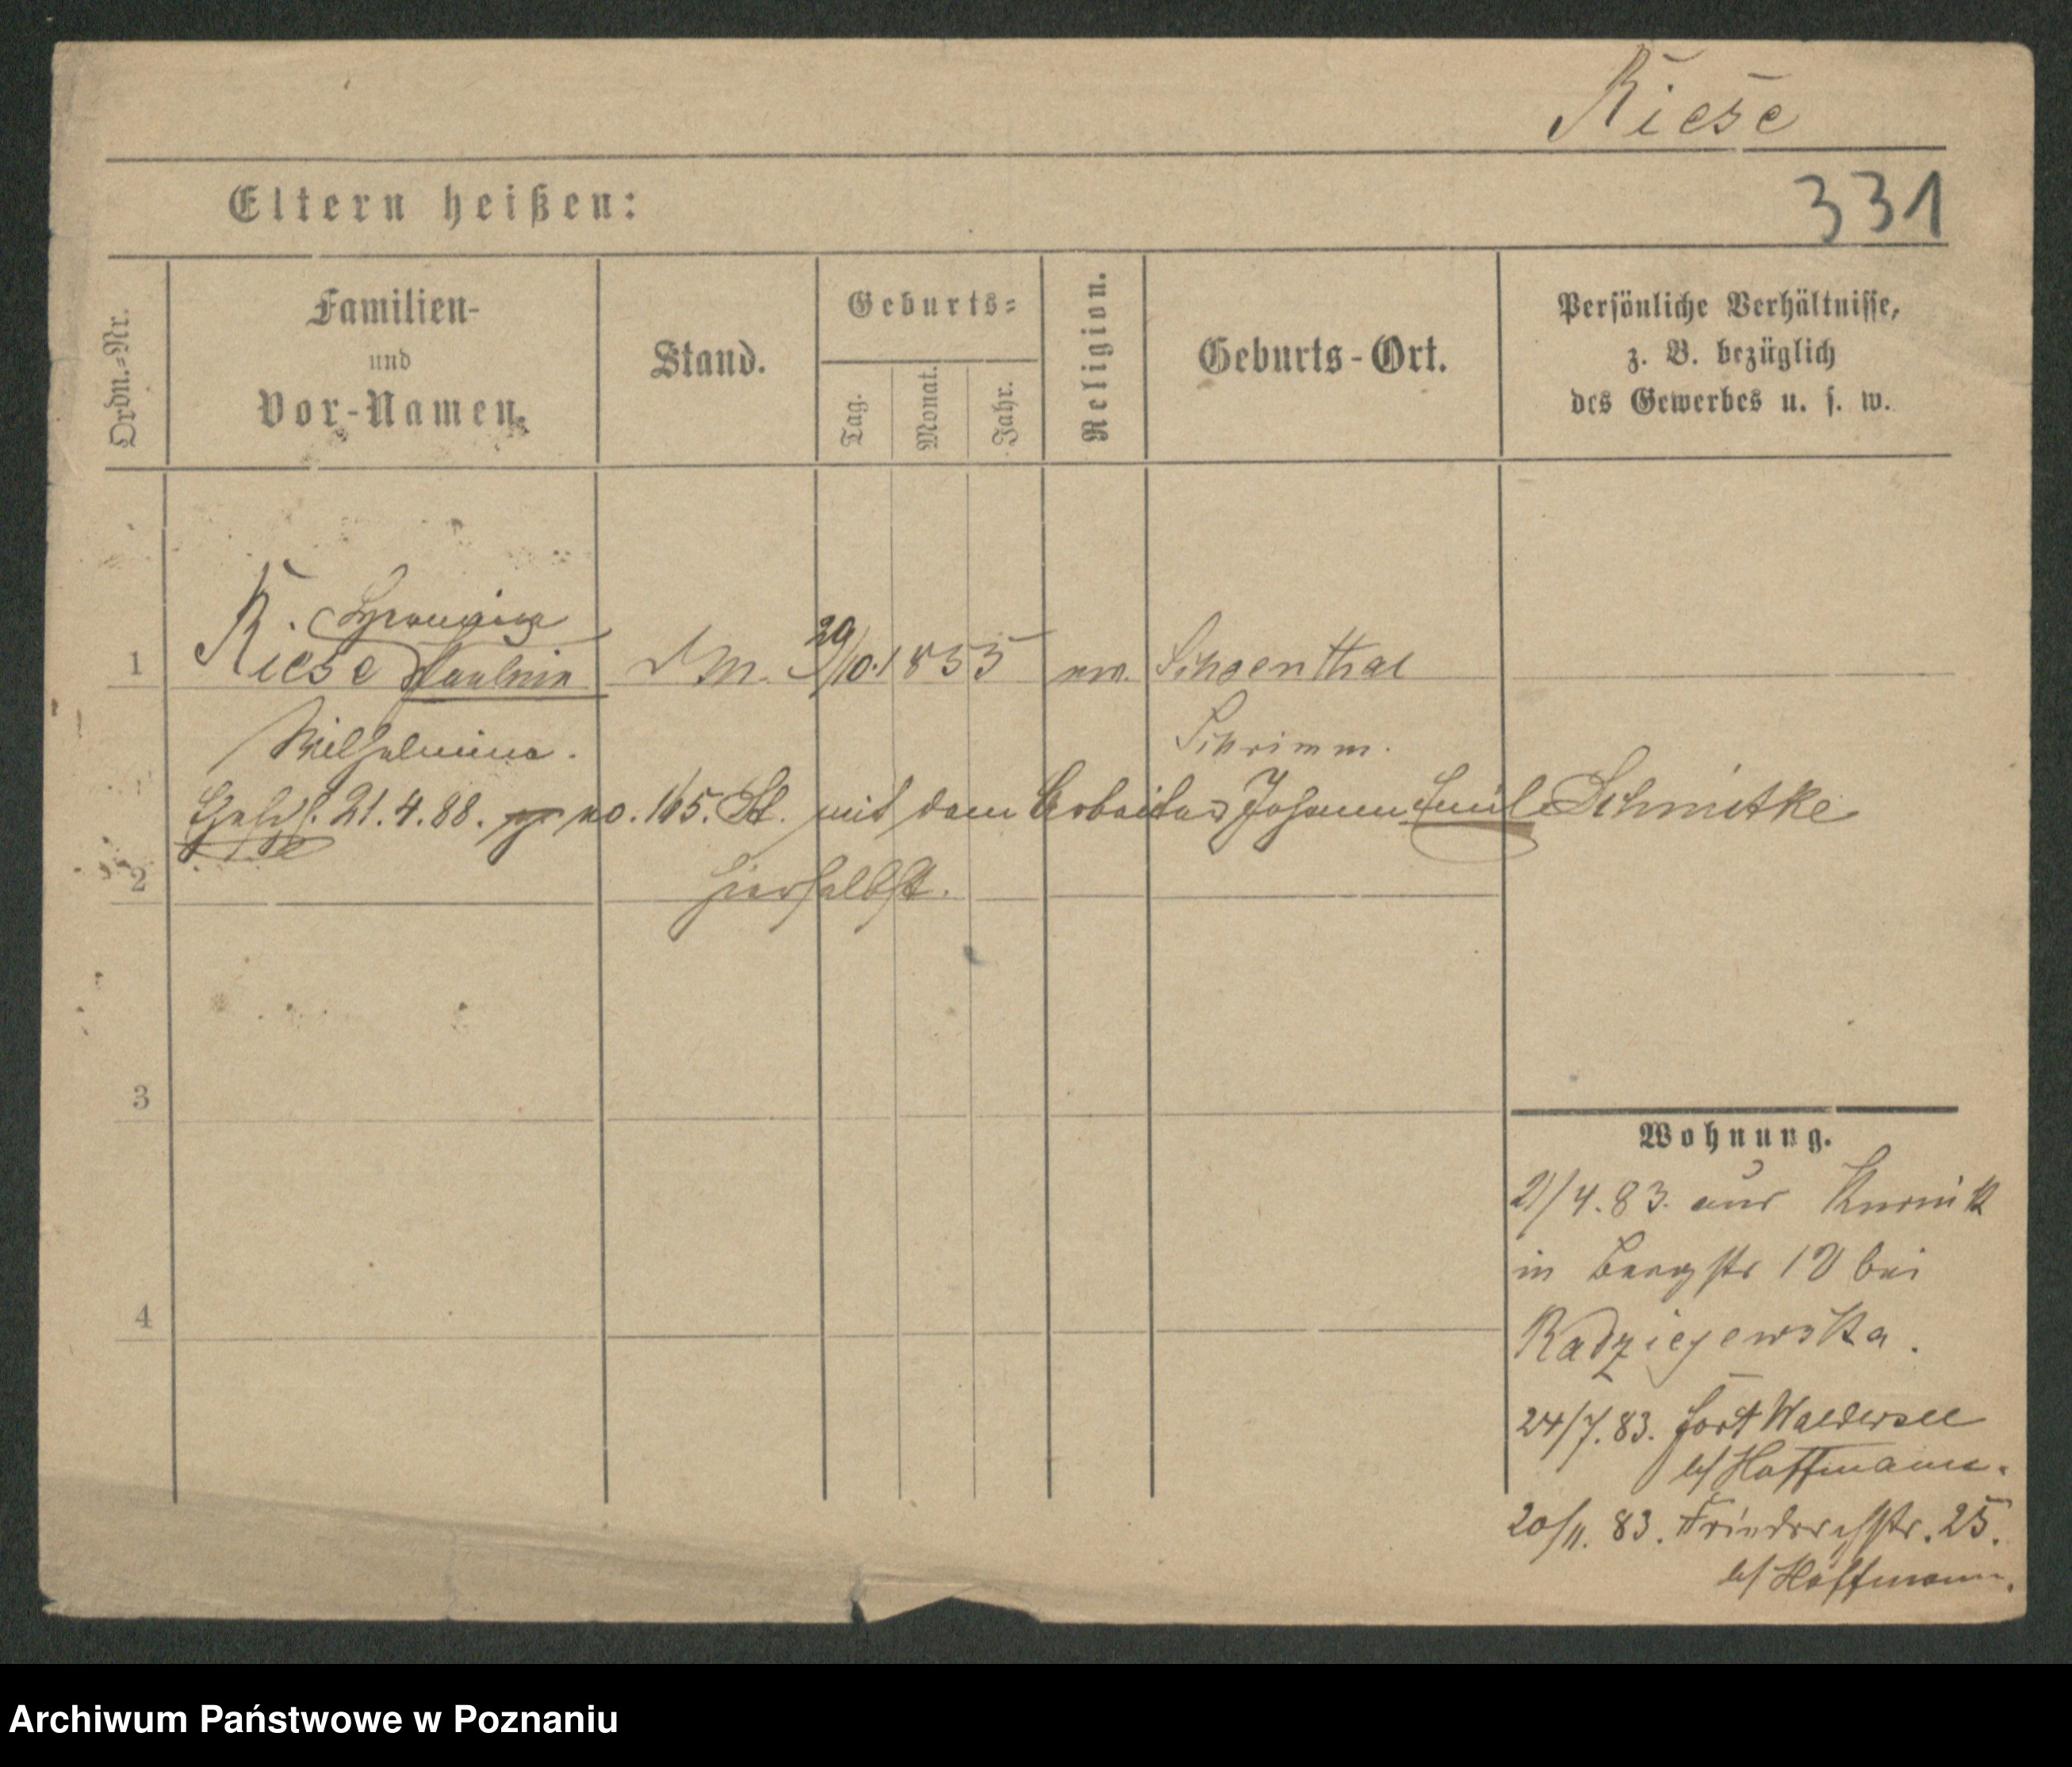 Riese
Eltern heißen:
331
Ordn.-Nr.
Familien-
und
Vor-Namen.
Stand.
Geburts-
Tag.
Monat.
Jahr.
Religion.
Geburts-Ort.
Persönliche Verhältnisse,
z. B. bezüglich
des Gewerbes u. s. w.
1
Riese Paulnia
DM.
29/10.1855
ev.
Schoenthal
Wilhelmine.
Schrimm.
21.4.88. no. 165. St. mit dem Arbeiter Johann Emil Schmitke
2
hierselbst.
3
4
Wohnung.
21/4.83. aus Kurnik
in Bergstr 12 bei
Radziejewska.
24/7.83. Fort Waldersee
b/ Hoffmann.
20/11.83. Friedrichstr. 25.
b/ Hoffmann.
Archiwum Państwowe w Poznaniu